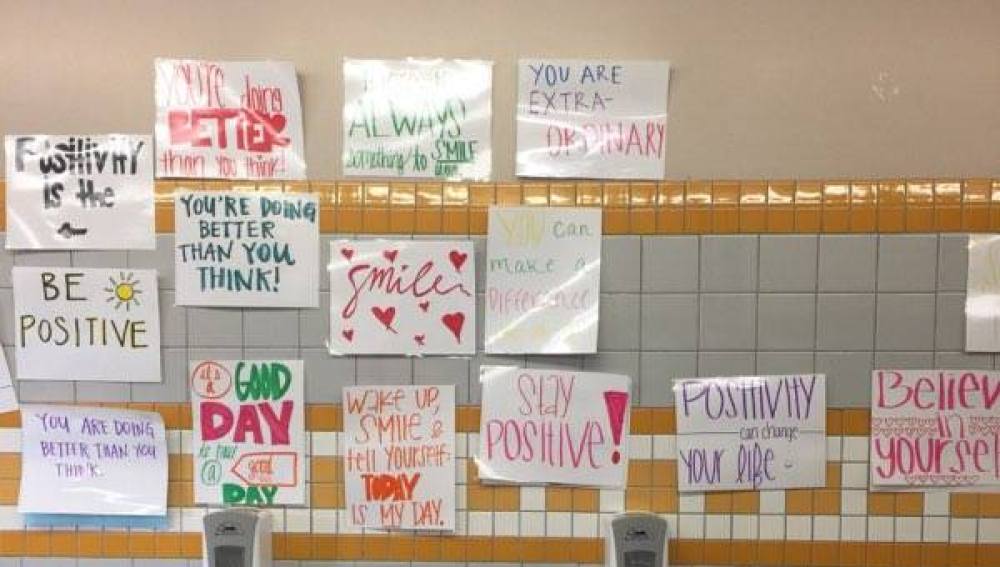 YOU'RE doing
BETTER
than you think!
ALWAYS
something to SMILE
YOU ARE
EXTRA-
ORDINARY
POSITIVITY
is the
YOU'RE DOING
BETTER
THAN YOU
THINK!
smile
YOU can
make a
Difference
BE
POSITIVE
YOU ARE DOING
BETTER THAN YOU
THINK.
it's
a GOOD
DAY
a good
DAY
WAKE UP,
SMILE &
tell YOURSELF:
TODAY
IS MY DAY.
Stay
POSITIVE!
POSITIVITY
can change
YOUR life
Believe
in
yourself